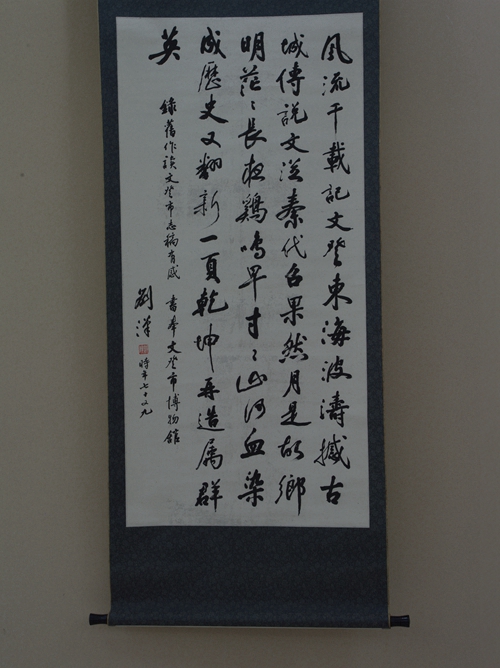 風流千載記文登東海波濤撼古
城傳說文從秦代召果然月是故鄉
明茫〻長夜鷄鳴早寸〻山河血染
成歷史又翻新一頁乾坤再造属群
英
錄舊作讀文登市志稿有感 書奉文登市博物館
劉漢
時年七十又九